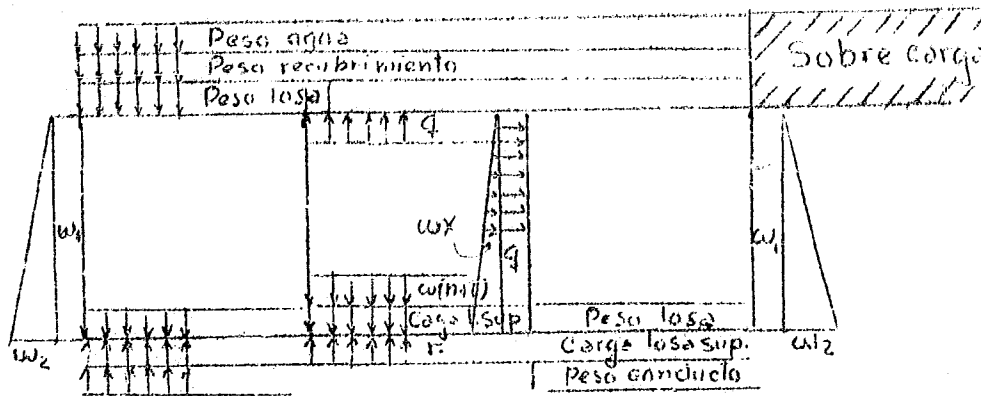 Peso agua
Peso recubrimiento
Peso losa
Sobre carga
q
w1
wx
q
w1
Peso losa
Carga losa sup.
Peso conducto
w2
w2